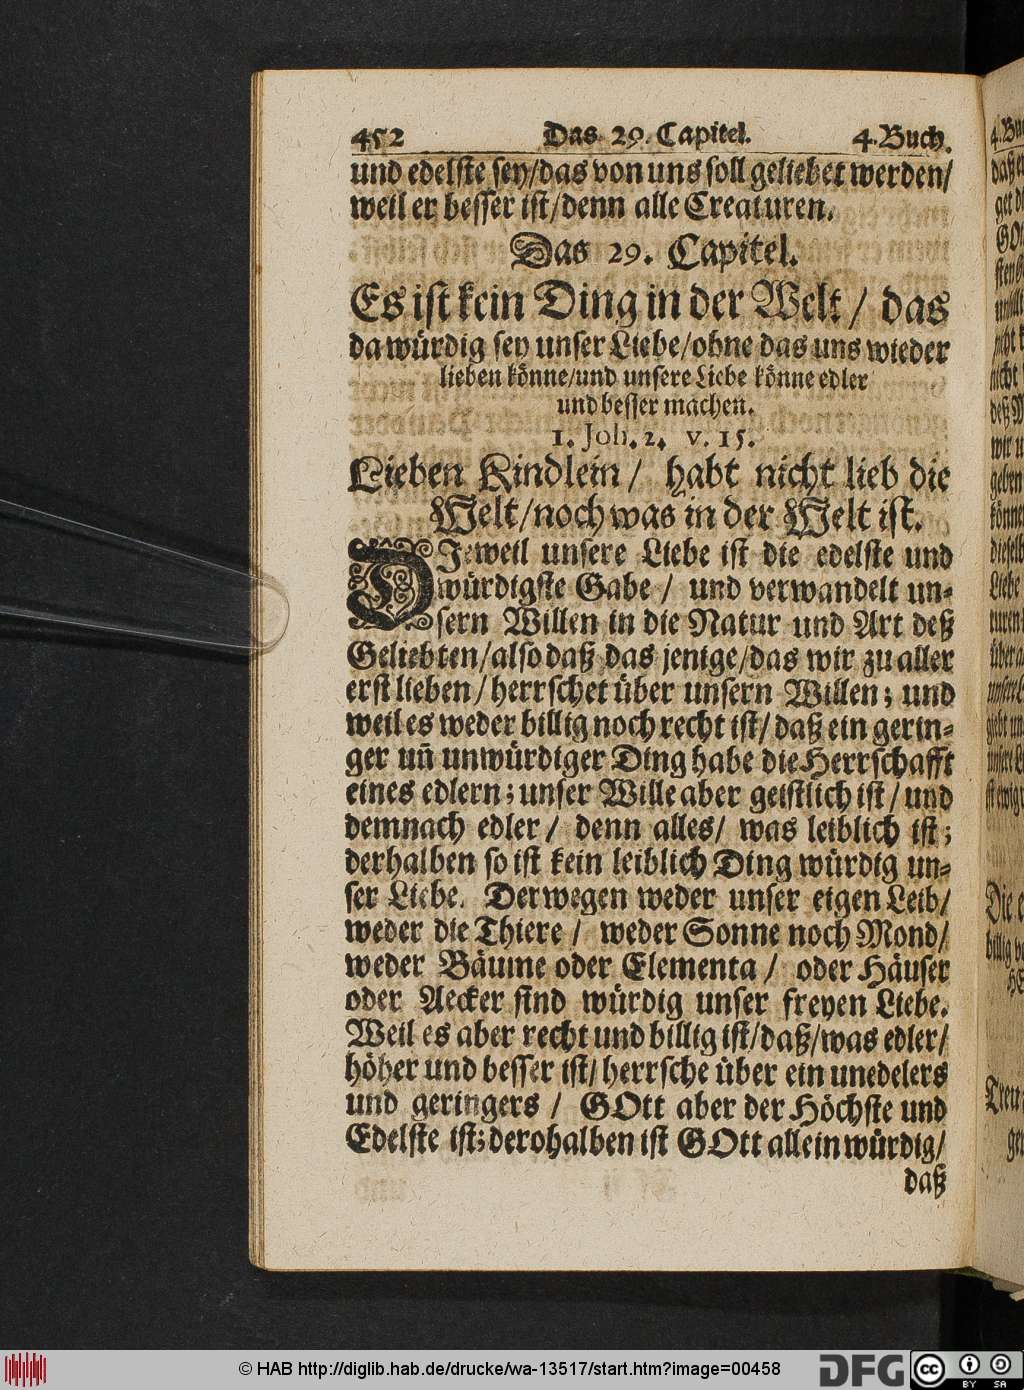 452 Das 29. Capitel. 4. Buch.
und edelste sey/das von uns soll geliebet werden/
weil er besser ist/denn alle Creaturen.
Das 29. Capitel.
Es ist kein Ding in der Welt / das
da würdig sey unser Liebe/ohne das uns wieder
lieben könne/und unsere Liebe könne edler
und besser machen.
1. Joh. 2. v. 15.
Lieben Kindlein / habt nicht lieb die
Welt/noch was in der Welt ist.
DJeweil unsere Liebe ist die edelste und
würdigste Gabe / und verwandelt un-
sern Willen in die Natur und Art deß
Geliebten/also daß das jenige/das wir zu aller
erst lieben/herrschet über unsern Willen; und
weil es weder billig noch recht ist/daß ein gerin-
ger uñ unwürdiger Ding habe die Herrschafft
eines edlern; unser Wille aber geistlich ist/und
demnach edler / denn alles/ was leiblich ist;
derhalben so ist kein leiblich Ding würdig un-
ser Liebe. Derwegen weder unser eigen Leib/
weder die Thiere / weder Sonne noch Mond/
weder Bäume oder Elementa / oder Häuser
oder Aecker sind würdig unser freyen Liebe.
Weil es aber recht und billig ist/daß/was edler/
höher und besser ist/herrsche über ein unedelers
und geringers / GOtt aber der Höchste und
Edelste ist; derohalben ist GOtt allein würdig/
daß
© HAB http://diglib.hab.de/drucke/wa-13517/start.htm?image=00458
DFG
cc BY SA